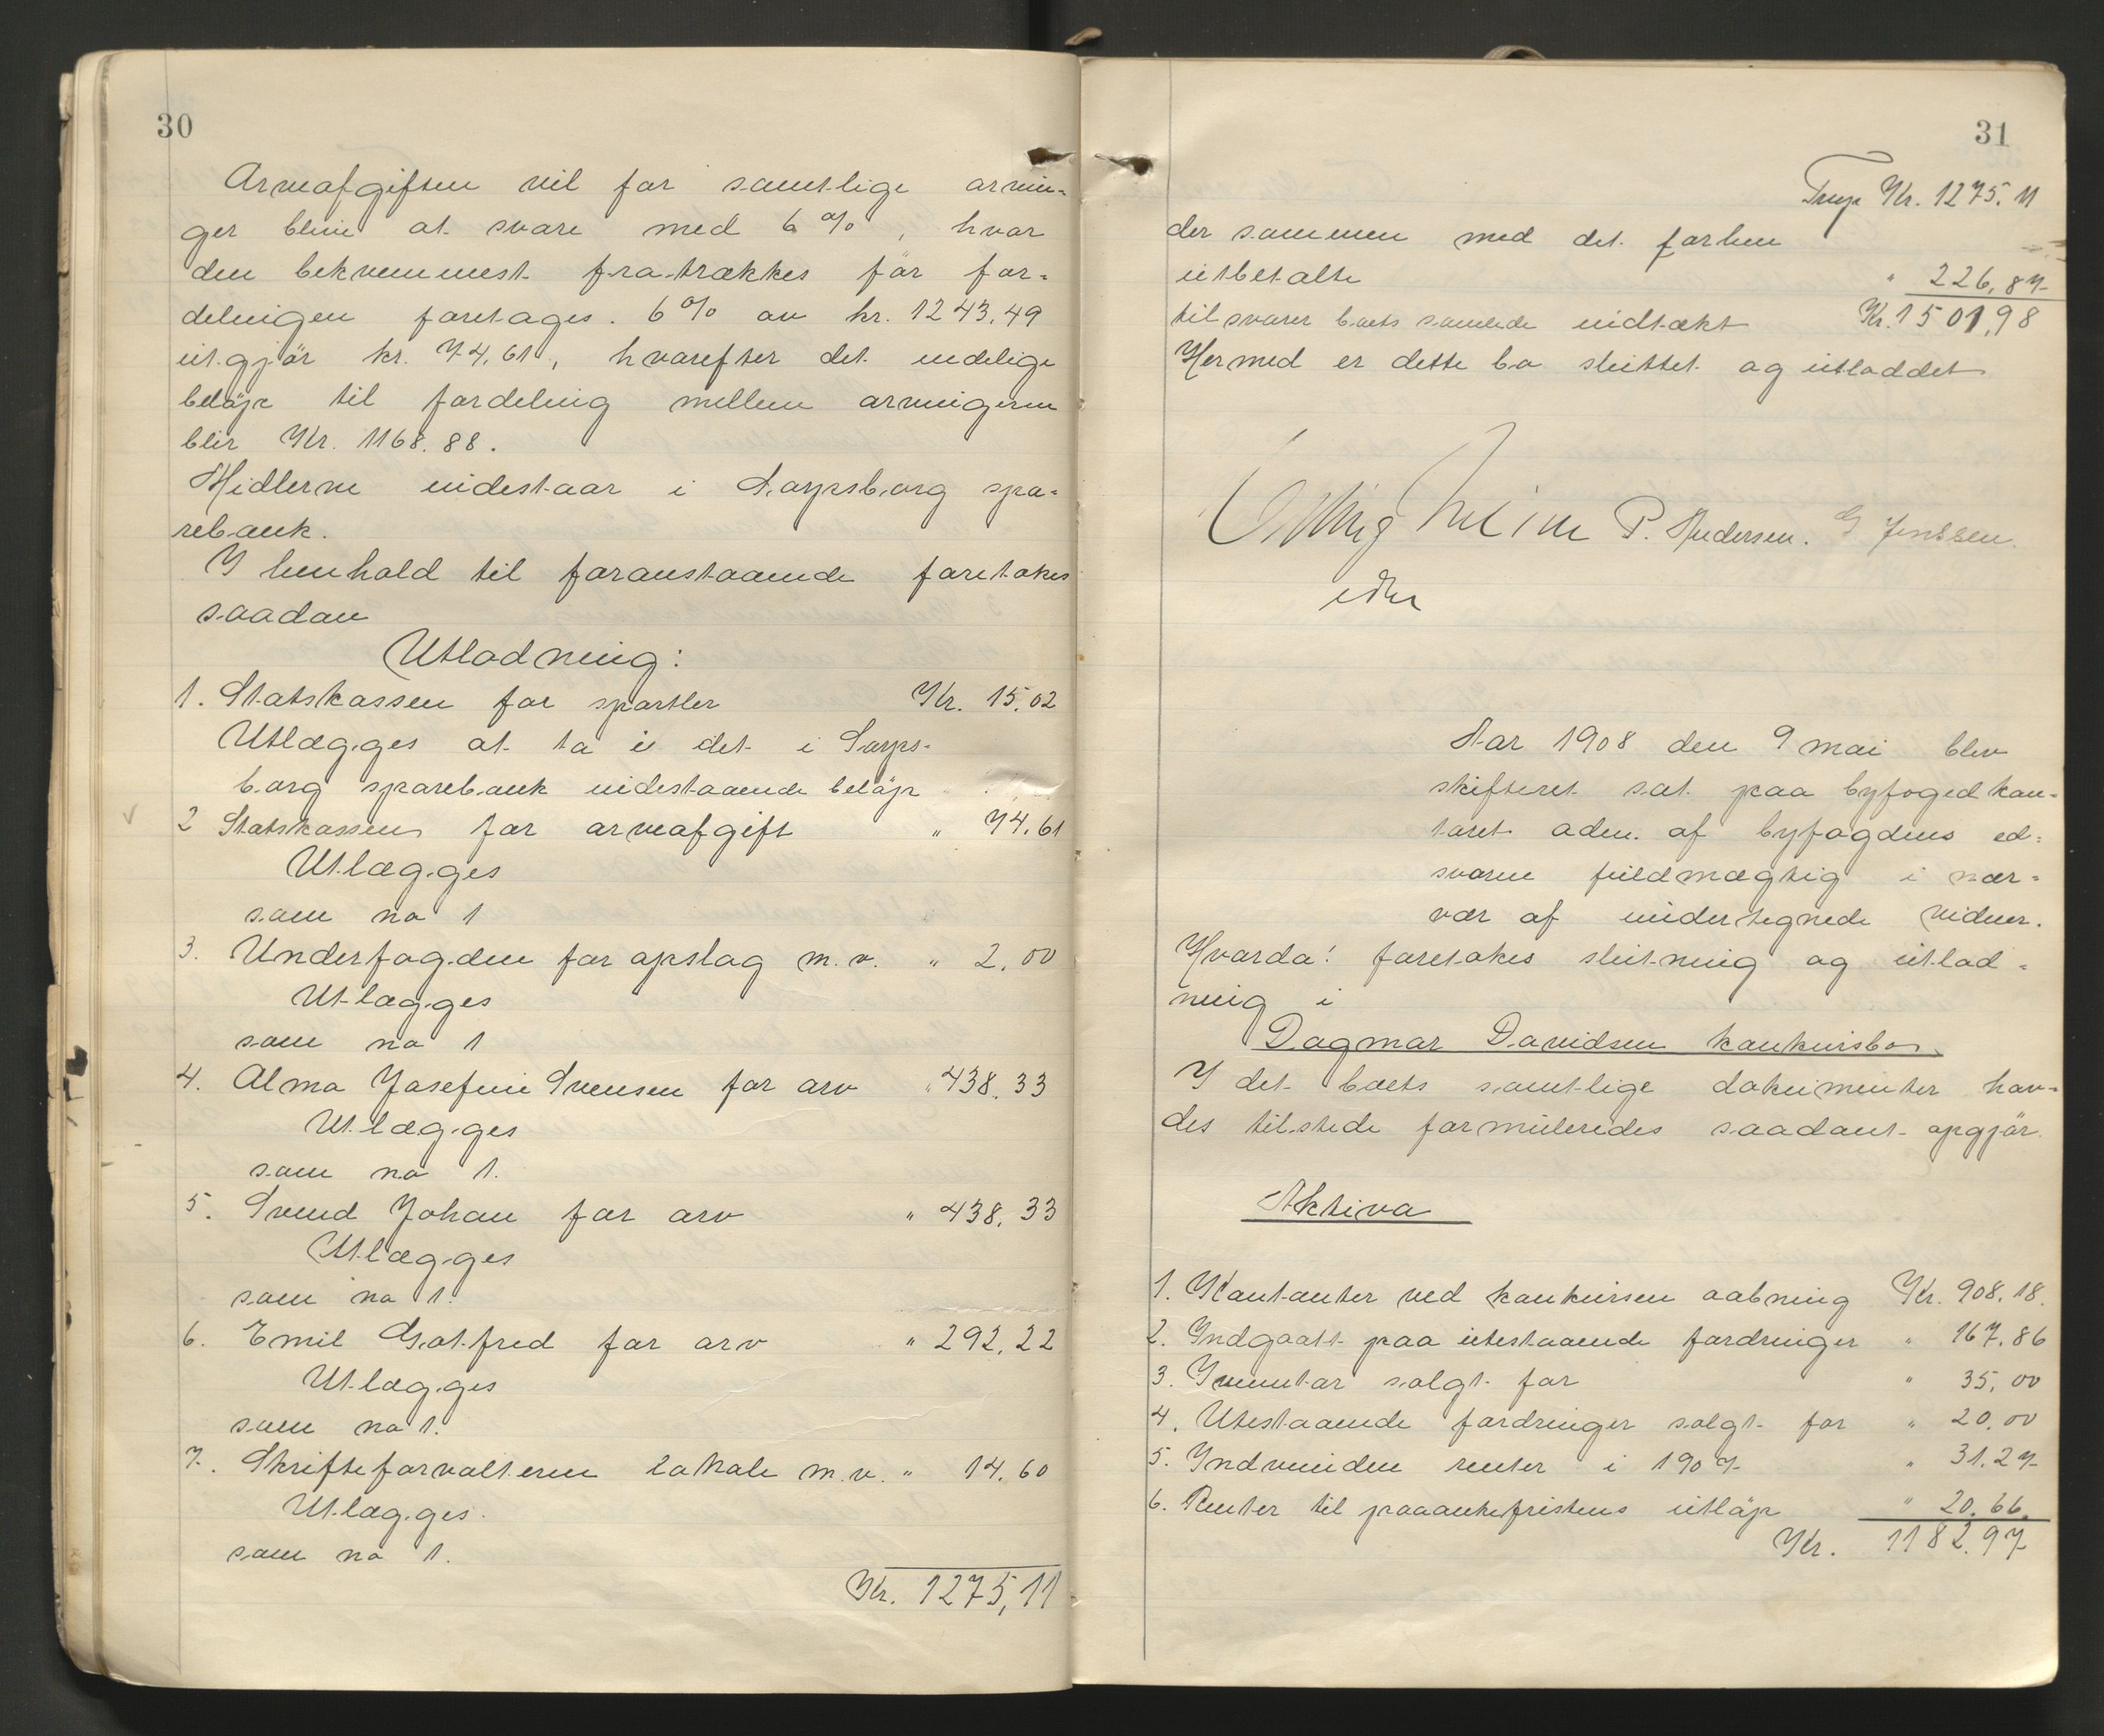 30
Arveafgiften vil for samtlige arvin-
ger blive at svare med 6 %, hvor
den bekvemmest fratrækkes för for-
delingen foretages. 6 % av kr. 1243.49
utgjör kr. 74,61, hvorefter det endelige
belöp til fordeling mellem arvingerne
blir Kr. 1168.88.
Midlerne indestaar i Sarpsborg spa-
rebank.
I henhold til foranstaaende foretokes
saadan
Utlodning:
1. Statskassen for sportler Kr. 15.02
Utlægges at ta i det i Sarps-
borg sparebank indestaaende belöp
2 Statskassen for arveafgift " 74.61
Utlægges
som no 1
3. Underfogden for opslag m.v. " 2.00
Utlægges
som no 1
4. Alma Josefine Svensen for arv " 438.33
Utlægges
som no 1.
5. Svend Johan for arv " 438.33
Utlægges
som no 1.
6. Emil Gotfred for arv " 292.22
Utlægges
som no 1.
7. Skifteforvalteren lokale m.v. " 14.60
Utlægges.
som no 1.
Kr. 1275,11
31
Trsp Kr. 1275.11
der sammen med det forhen
utbetalte " 226,87
tilsvarer boets samlede indtækt Kr. 1501,98
Hermed er dette bo sluttet og utloddet
P. Andersen. G Jenssen.
Aar 1908 den 9 mai blev
skifteret sat paa byfogedkon-
toret adm. af byfogdens ed-
svorne fuldmægtig i nær-
vær af undertegnede vidner.
Hvorda! foretokes slutning og utlod-
ning i
Dagmar Davidsen konkursbo.
I det boets samtlige dokumenter hav-
des tilstede formuleredes saadant opgjör.
Aktiva
1. Kontanter ved konkursen aabning Kr. 908.18.
2. Indgaatt paa utestaaende fordringer " 167.86
3. Inventar solgt for " 35,00
4. Utestaaende fordringer solgt for " 20.00
5. Indvunden renter i 1907 " 31.27
6. Renter til paaankefristens utlöp " 20.66.
Kr. 1182.97